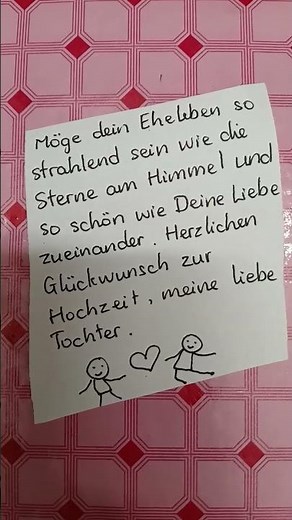 Möge dein Eheleben so
strahlend sein wie die
Sterne am Himmel und
so schön wie Deine Liebe
zueinander. Herzlichen
Glückwunsch zur
Hochzeit, meine liebe
Tochter.